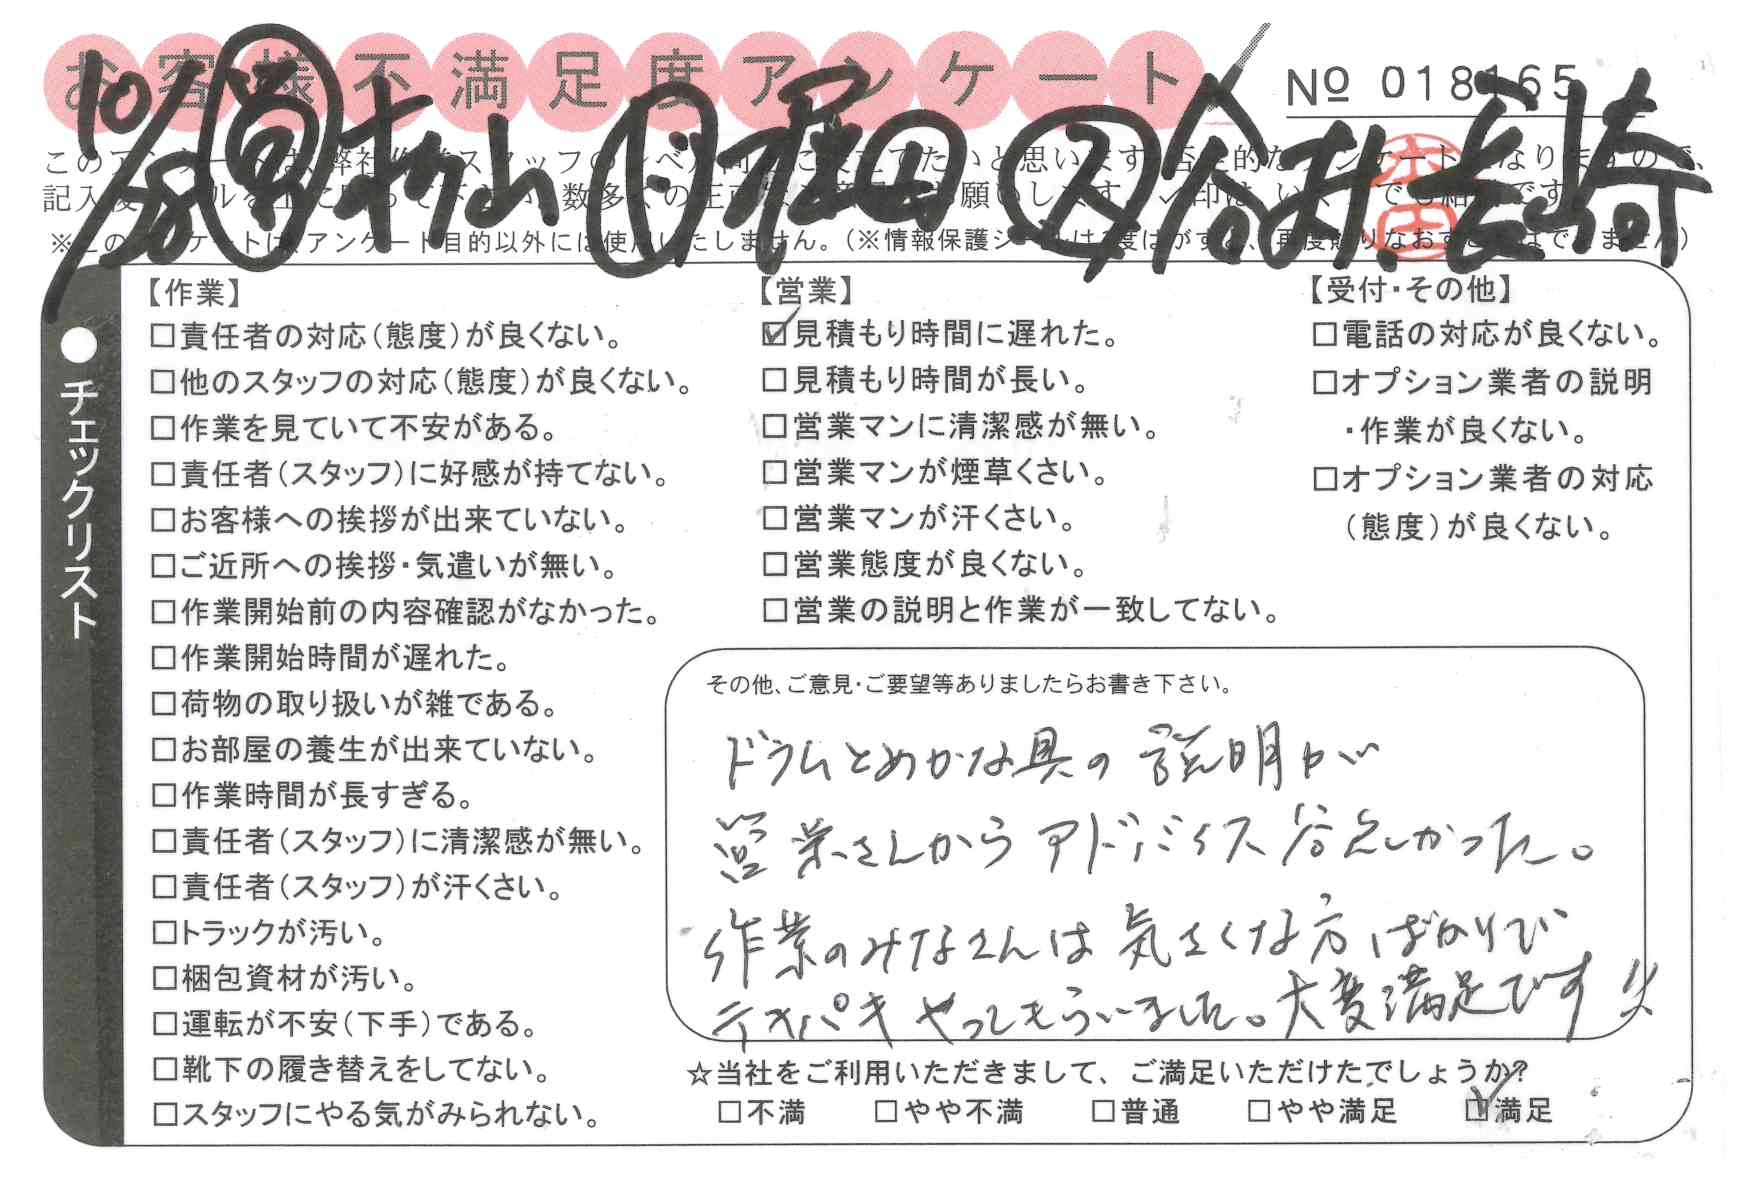 お客様不満足度アンケート
№ 018165
10/28 営 杉山 日 窪田 ス 谷村、長崎
※このアンケートは、アンケート目的以外には使用いたしません。（※情報保護シールは1度はがすと、再度貼りなおすことはできません）
●チェックリスト
【作業】
□責任者の対応（態度）が良くない。
□他のスタッフの対応（態度）が良くない。
□作業を見ていて不安がある。
□責任者（スタッフ）に好感が持てない。
□お客様への挨拶が出来ていない。
□ご近所への挨拶・気遣いが無い。
□作業開始前の内容確認がなかった。
□作業開始時間が遅れた。
□荷物の取り扱いが雑である。
□お部屋の養生が出来ていない。
□作業時間が長すぎる。
□責任者（スタッフ）に清潔感が無い。
□責任者（スタッフ）が汗くさい。
□トラックが汚い。
□梱包資材が汚い。
□運転が不安（下手）である。
□靴下の履き替えをしてない。
□スタッフにやる気がみられない。
【営業】
☑見積もり時間に遅れた。
□見積もり時間が長い。
□営業マンに清潔感が無い。
□営業マンが煙草くさい。
□営業マンが汗くさい。
□営業態度が良くない。
□営業の説明と作業が一致してない。
【受付・その他】
□電話の対応が良くない。
□オプション業者の説明
・作業が良くない。
□オプション業者の対応
（態度）が良くない。
その他、ご意見・ご要望等ありましたらお書き下さい。
ドラムとめかな具の説明が
営業さんからアドバイスなかった。
作業のみなさんは気さくな方ばかりで
テキパキやってもらいました。大変満足です!!
☆当社をご利用いただきまして、ご満足いただけたでしょうか?
□不満 □やや不満 □普通 □やや満足 ☑満足